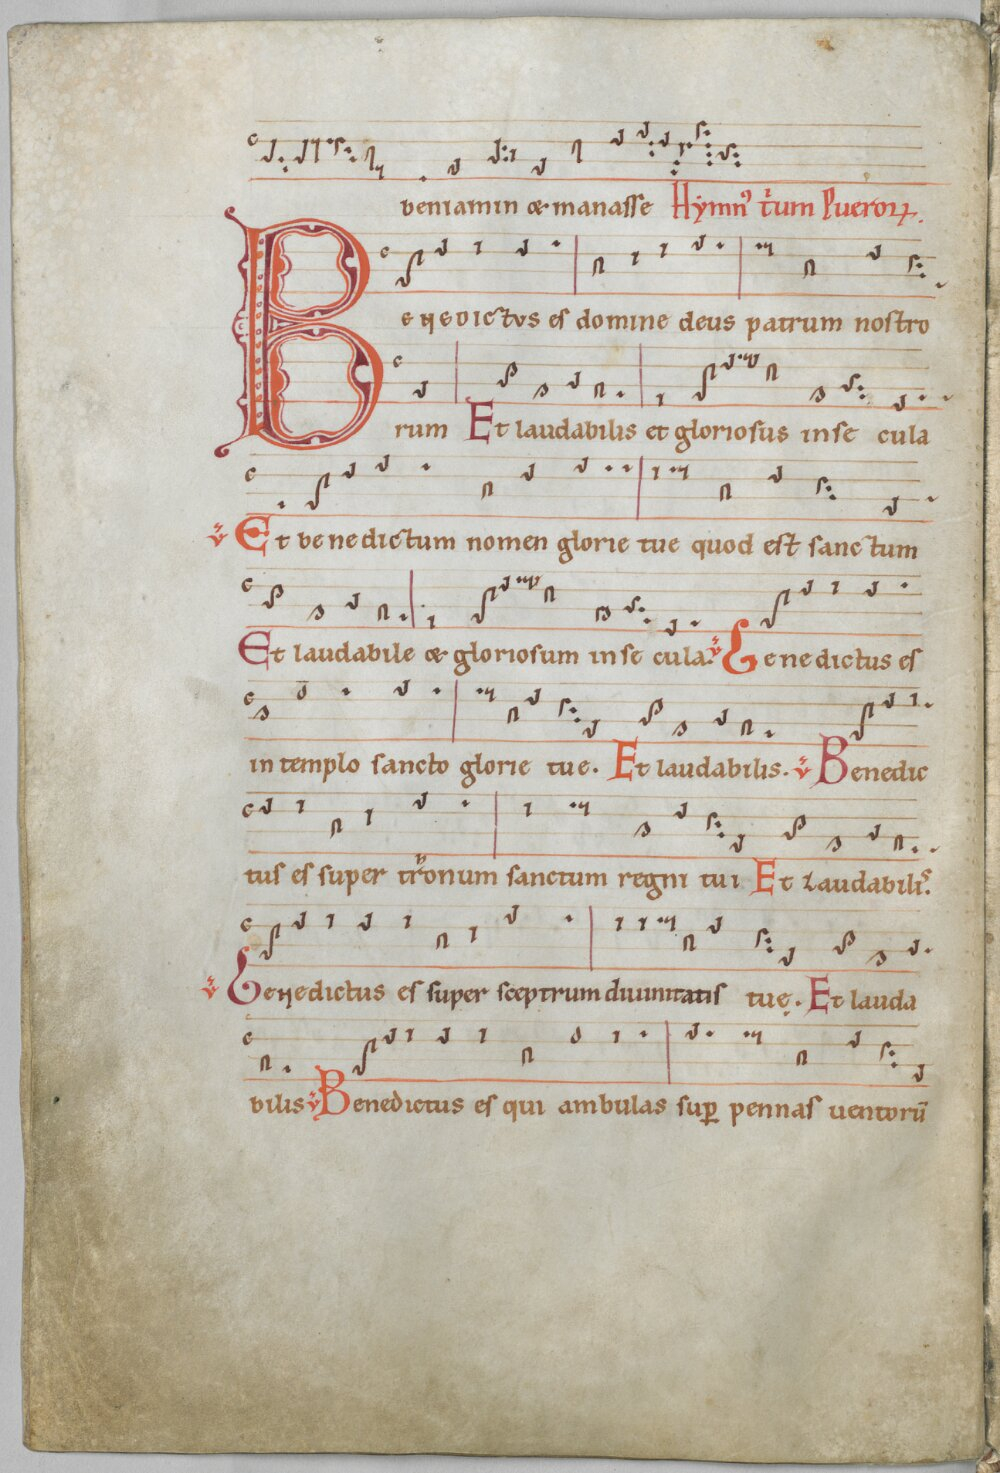 beniamin & manasse Hymn' trium Pueror&#42843;.
Benedictus es domine deus patrum nostro
rum Et laudabilis et gloriosus in se cula
Et benedictum nomen glorie tue quod est sanctum
Et laudabile & gloriosum in se cula. Benedictus es
in templo sancto glorie tue. Et laudabilis. Benedic
tus es super tronum sanctum regni tui Et laudabilis.
Benedictus es super sceptrum diuinitatis tuę. Et lauda
bilis Benedictus es qui ambulas sup̱ pennas uentorū